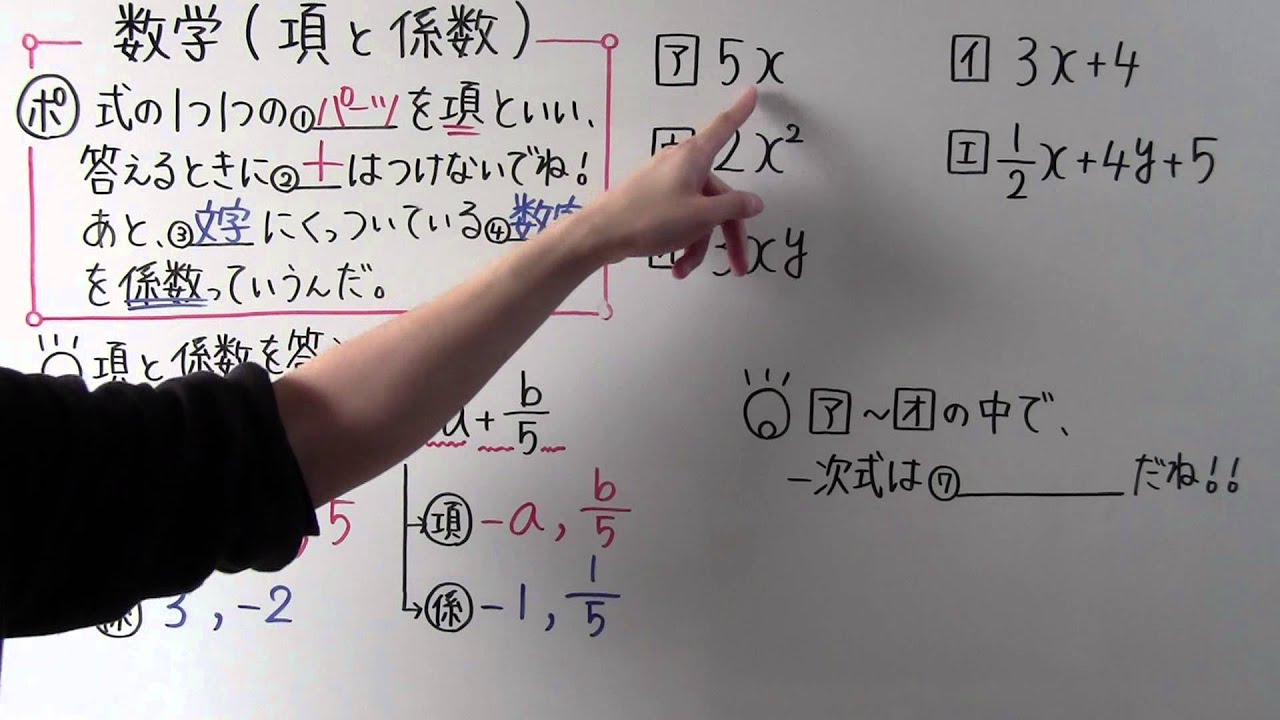 数学(項と係数)
ポ 式の1つ1つの①パーツを項といい、
答えるときに②+はつけないでね!
あと、③文字にくっついている④数字
を係数っていうんだ。
項と係数を答
a+b/5
, 5
項 -a, b/5
係 3, -2
係 -1, 1/5
ア 5x
イ 3x+4
2x²
エ 1/2x+4y+5
3xy
ア~オの中で、
一次式は⑦ だね!!